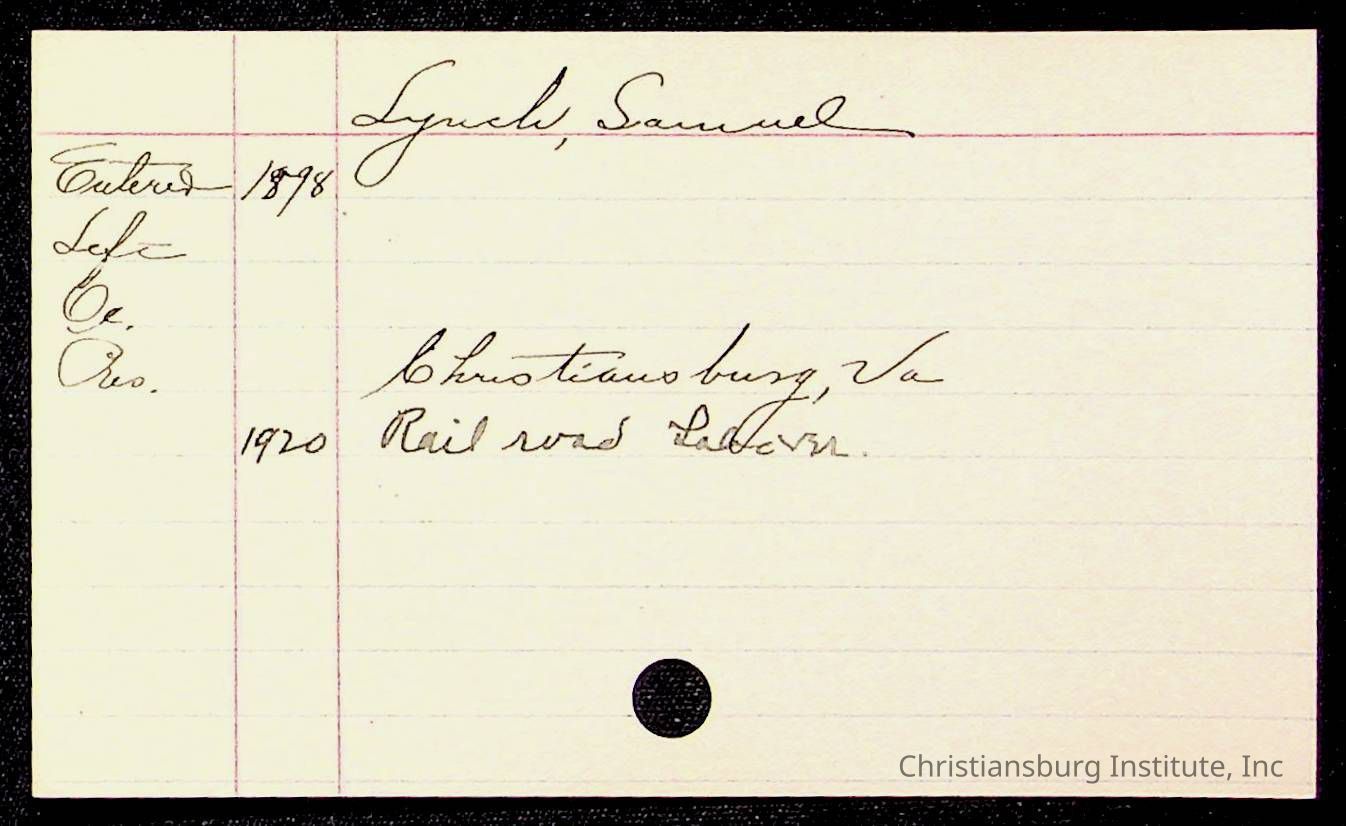 Lynch, Samuel
Entered 1898
Left
Oc.
Res. Christiansburg, Va
1920 Rail road Laborer.
Christiansburg Institute, Inc